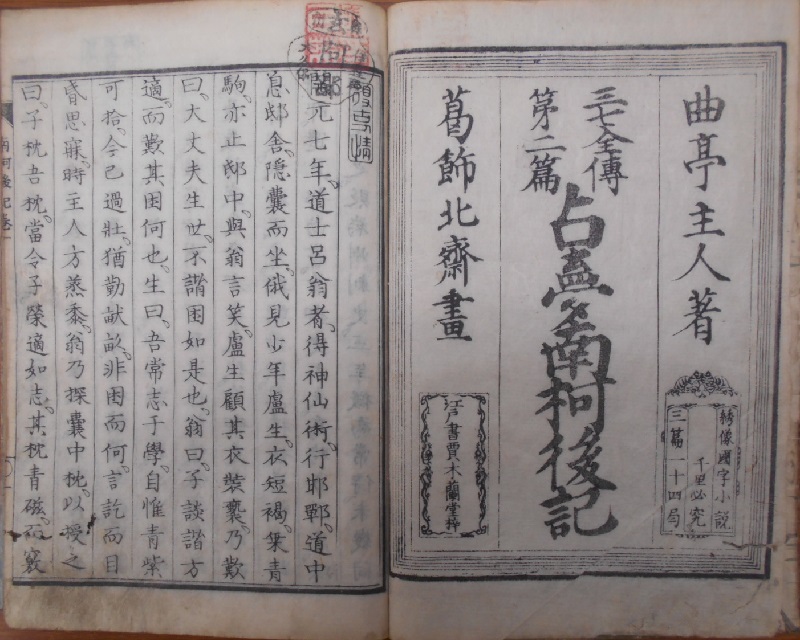 曲亭主人著
繡像國字小說
千里必究
三篇二十四局
三七全傳
第二篇
占夢南柯後記
葛飾北齋畫
江戸書賈木蘭堂梓
開元七年。道士呂翁者。得神仙術。行邯鄲。道中
息邸舍。隱囊而坐。俄見少年盧生。衣短褐。乗青
駒。亦止邸中。與翁言笑。盧生顧其衣裝褻。乃歎
曰。大丈夫生世。不諧困如是也。翁曰。子談諧方
適。而歎其困何也。生曰。吾常志于學。自惟青紫
可拾。今已過壯。猶勤畎畝。非困而何。言訖而目
昏思寐。時主人方蒸黍。翁乃探囊中枕。以授之
曰。子枕吾枕。當令子榮適如志。其枕青磁。而竅
南柯後記卷一